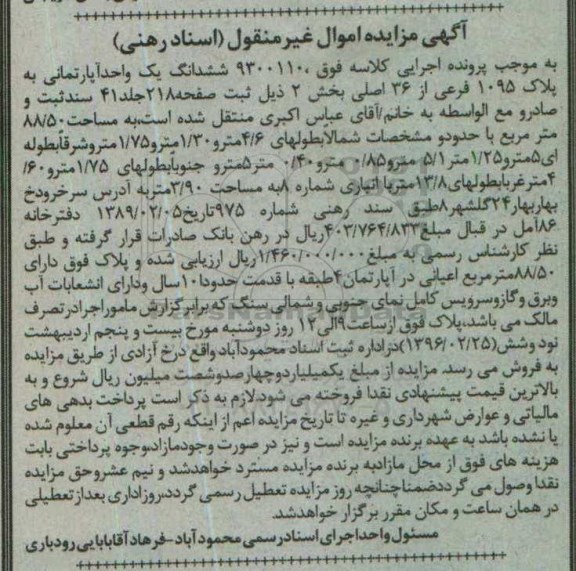 آگهی مزایده اموال غیر منقول (اسناد رهنی)
به موجب پرونده اجرایی کلاسه فوق ،۹۳۰۰۱۱۰ ششدانگ یک واحدآپارتمانی به
پلاک ۱۰۹۵ فرعی از ۳۶ اصلی بخش ۲ ذیل ثبت صفحه۲۱۸جلد۴۱ سندثبت و
صادرو مع الواسطه به خانم/آقای عباس اکبری منتقل شده است،به مساحت۸۸/۵۰
متر مربع با حدودو مشخصات شمالاًبطولهای ۴/۶مترو۱/۳۰مترو۱/۷۵متروشرقاًبطوله
ای۵مترو۱/۲۵متر۵/۱ مترو۰/۸۵ مترو۰/۴۰ متر۵مترو جنوباًبطولهای ۱/۷۵مترو۶۰/
۴مترغرباًبطولهای۱۳/۸متربا انباری شماره ۸به مساحت ۳/۹۰متربه آدرس سرخرودخ
بهاربهار۲۴گلشهر۸طبق سند رهنی شماره ۹۷۵تاریخ۱۳۸۹/۰۲/۰۵ دفترخانه
۸۶آمل در قبال مبلغ۴۰۳/۷۶۴/۸۳۳ریال در رهن بانک صادرات قرار گرفته و طبق
نظر کارشناس رسمی به مبلغ۱/۴۶۰/۰۰۰/۰۰۰ریال ارزیابی شده و پلاک فوق دارای
۸۸/۵۰مترمربع اعیانی در آپارتمان۴طبقه با قدمت حدودا۱۰سال ودارای انشعابات آب
وبرق وگازوسرویس کامل نمای جنوبی وشمالی سنگ که برابرگزارش ماموراجرادرتصرف
مالک می باشد،پلاک فوق ازساعت۹الی۱۲ روز دوشنبه مورخ بیست و پنجم اردیبهشت
نود وشش(۱۳۹۶/۰۲/۲۵)دراداره ثبت اسناد محمودآباد واقع درخ آزادی از طریق مزایده
به فروش می رسد. مزایده از مبلغ یکمیلیاردوچهارصدوشصت میلیون ریال شروع و به
بالاترین قیمت پیشنهادی نقدا فروخته می شود.لازم به ذکر است پرداخت بدهی های
مالیاتی و عوارض شهرداری و غیره تا تاریخ مزایده اعم از اینکه رقم قطعی آن معلوم شده
یا نشده باشد به عهده برنده مزایده است و نیز در صورت وجودمازاد،وجوه پرداختی بابت
هزینه های فوق از محل مازادبه برنده مزایده مسترد خواهدشد و نیم عشروحق مزایده
نقدا وصول می گرددضمناچنانچه روز مزایده تعطیل رسمی گردد،روزاداری بعدازتعطیلی
در همان ساعت و مکان مقرر برگزار خواهدشد.
مسئول واحداجرای اسنادرسمی محمودآباد-فرهادآقابابایی رودباری